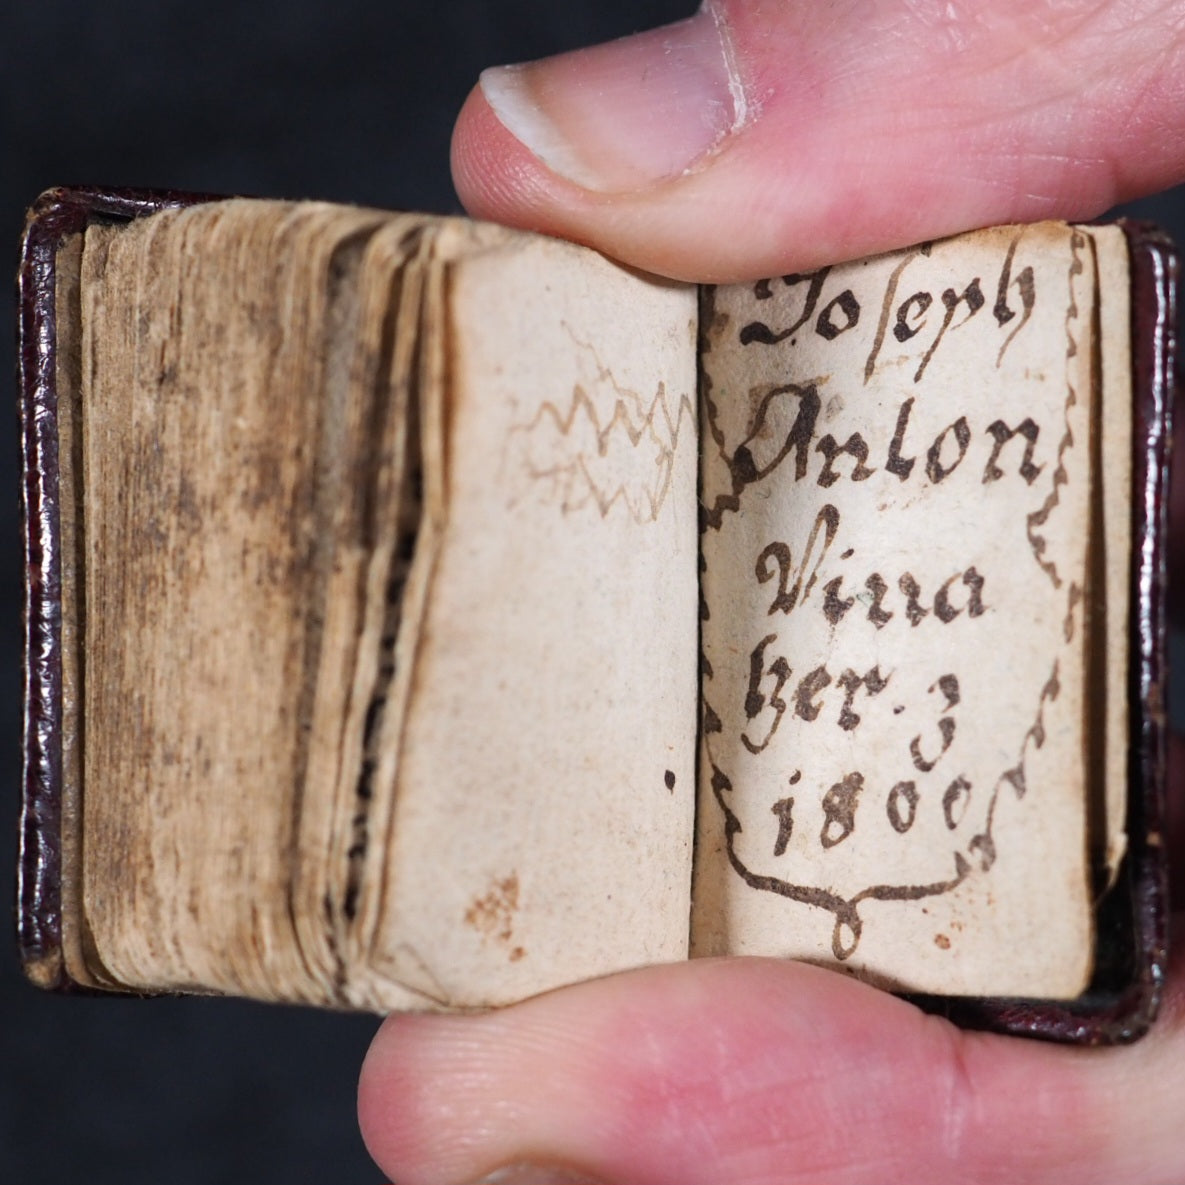 Joſeph
Anton
Vinna
tzer. z
1800